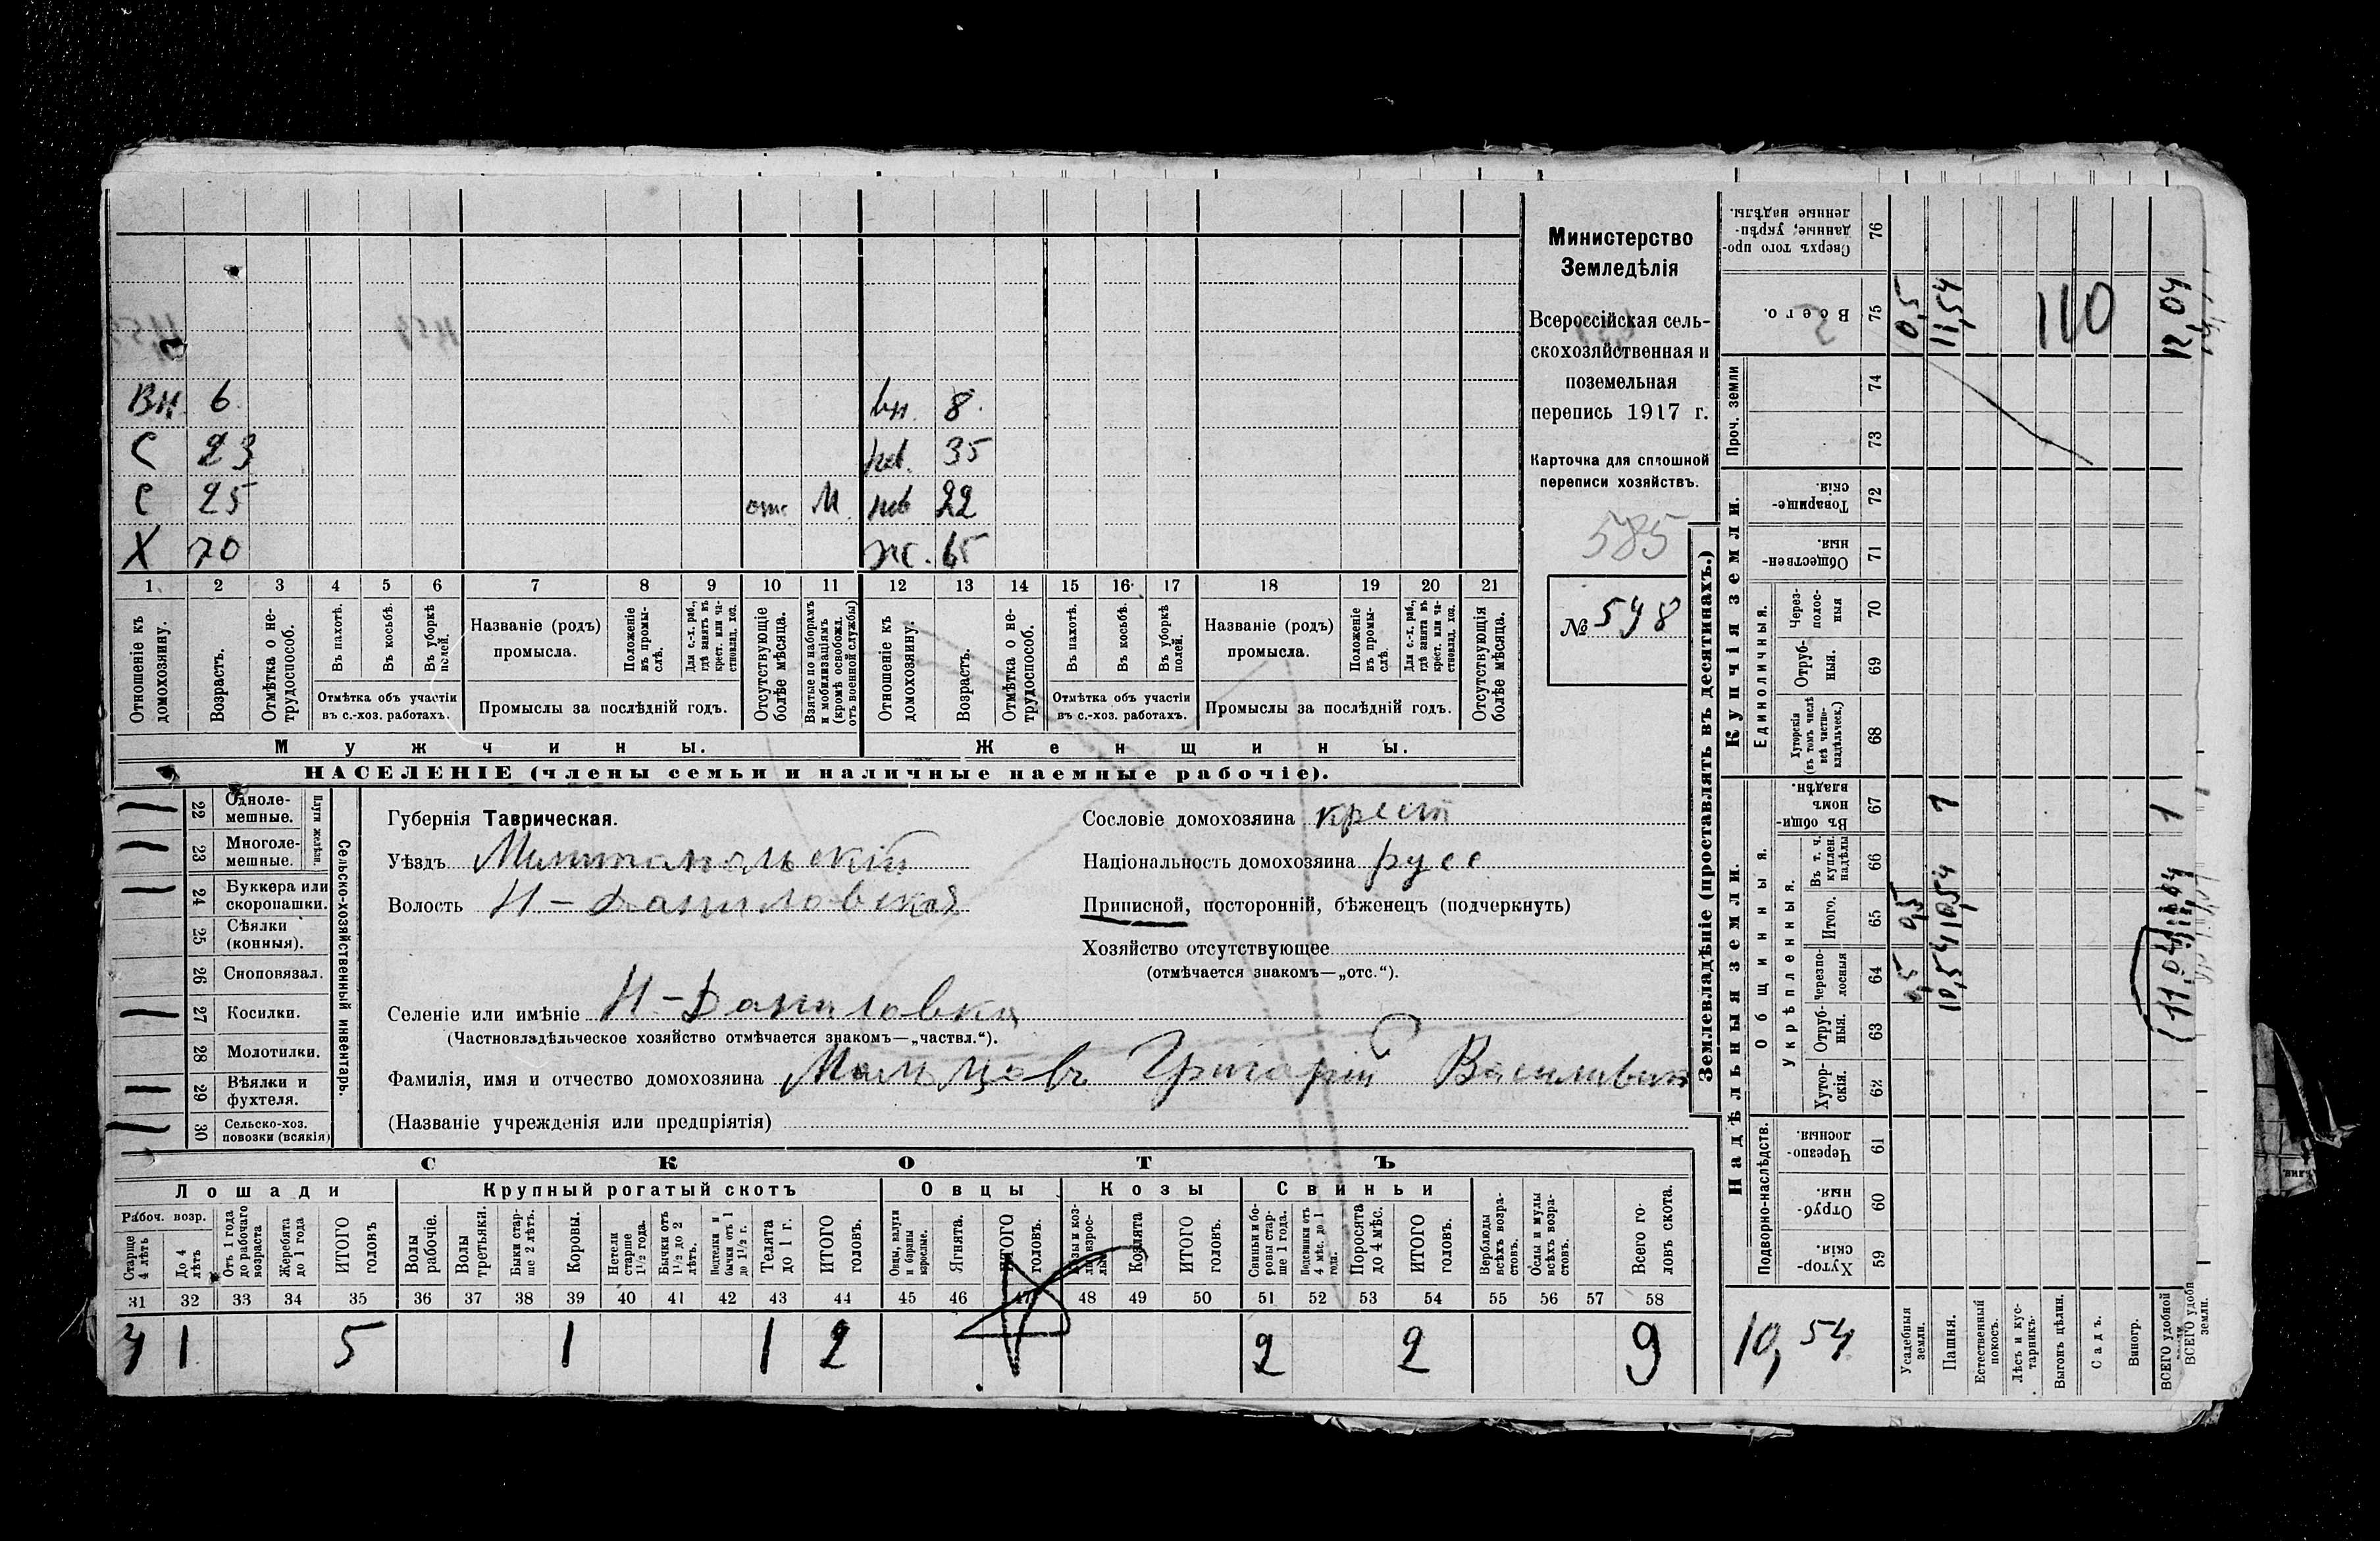 Министерство
Земледѣлія
Всероссійская сель-
скохозяйственная и
поземельная
перепись 1917 г.
Карточка для сплошной
переписи хозяйствъ.
585
№ 598
Вн. 6 вн. 8
С 23 35
С 25 отс М. 22
Х 70 ж. 65
1. 2 3 4 5 6 7 8 9 10 11 12 13 14 15 16 17 18 19 20 21
Отношеніе къ домохозяину.
Возрастъ.
Отмѣтка о не-трудоспособ.
Въ пахотѣ.
Въ косьбѣ.
Въ уборкѣ полей.
Отмѣтка объ участіи въ с.-хоз. работахъ.
Названіе (родъ) промысла.
Положеніе въ промы-слѣ.
Для с.-х. раб., гдѣ занятъ въ крест. или ча-стновлад. хоз.
Промыслы за послѣдній годъ.
Отсутствующіе болѣе мѣсяца.
Взятые по наборамъ и мобилизаціямъ (кромѣ освобожд. отъ военной службы)
Отношеніе къ домохозяину.
Возрастъ.
Отмѣтка о не-трудоспособ.
Въ пахотѣ.
Въ косьбѣ.
Въ уборкѣ полей.
Отмѣтка объ участіи въ с.-хоз. работахъ.
Названіе (родъ) промысла.
Положеніе въ промы-слѣ.
Для с.-х. раб., гдѣ занята въ крест. или ча-стновлад. хоз.
Промыслы за послѣдній годъ.
Отсутствующія болѣе мѣсяца.
Мужчины. Женщины.
НАСЕЛЕНІЕ (члены семьи и наличные наемные рабочіе).
22 Одноле-мешные.
23 Многоле-мешные.
Плуги желѣзн.
24 Буккера или скоропашки.
25 Сѣялки (конныя).
26 Сноповязал.
27 Косилки.
28 Молотилки.
29 Вѣялки и фухтеля.
30 Сельско-хоз. повозки (всякія)
Сельско-хозяйственный инвентарь.
Губернія Таврическая.
Уѣздъ Мелитопольскій
Волость Н-Даниловская
Селеніе или имѣніе Н-Даниловка
(Частновладѣльческое хозяйство отмѣчается знакомъ—„частвл.“).
Фамилія, имя и отчество домохозяина Мальцовъ Григорій
(Названіе учрежденія или предпріятія)
Сословіе домохозяина крест
Національность домохозяина русс
Приписной, посторонній, бѣженецъ (подчеркнуть)
Хозяйство отсутствующее
(отмѣчается знакомъ—„отс.“).
СКОТЪ
Лошади Крупный рогатый скотъ Овцы Козы Свиньи
Рабоч. возр.
Старше 4 лѣтъ
До 4 лѣтъ
Отъ 1 года до рабочаго возраста
Жеребята до 1 года
ИТОГО головъ
Волы рабочіе.
Волы третьяки.
Быки стар-ше 2 лѣтъ.
Коровы.
Нетели старше 1½ года.
Бычки отъ 1½ до 2 лѣтъ.
бычки отъ 1 до 1½ г.
Телята до 1 г.
ИТОГО головъ.
Овцы, валухи и бараны взрослые.
Ягнята.
ИТОГО головъ.
Козы и коз-лы взрос-лые
Козлята
ИТОГО головъ.
Свиньи и бо-ровы стар-ше 1 года.
Подсвинки отъ 4 мѣс. до 1 года.
Поросята до 4 мѣс.
ИТОГО головъ.
Верблюды всѣхъ возра-стовъ.
Ослы и мулы всѣхъ возра-стовъ.
Всего го-ловъ скота.
31 32 33 34 35 36 37 38 39 40 41 42 43 44 45 46 47 48 49 50 51 52 53 54 55 56 57 58
4 1 5 1 1 2 2 2 9
Землевладѣніе (проставлять въ десятинахъ.)
Надѣльныя земли. Купчія земли. Проч. земли
Подворно-наслѣдств.
Общинныя.
Укрѣпленныя.
Единоличныя.
59 Хутор-скія.
60 Отруб-ныя.
61 Черезпо-лосныя.
62 Хутор-скія.
63 Отруб-ныя.
64 Черезпо-лосныя
65 Итого.
66 Въ т. ч. куплен. надѣлы
67 Въ общин-номъ владѣн.
68 Хуторскія (въ томъ числѣ всѣ частно-владѣльческ.)
69 Отруб-ныя.
70 Через-полос-ныя
71 Обществен-ныя.
72 Товарище-скія.
73
74
75 Всего.
76 Сверхъ того про-данные, укрѣп-ленные надѣлы.
10,54
Усадебныя земли. 0,5 0,5 0,5
Пашня. 10,54 10,54 1 11,54
Естественный покосъ.
Лѣсъ и кус-тарникъ.
Выгонъ цѣлин.
Садъ.
Виногр.
110
ВСЕГО удобной земли 11,04 1 12,04
ВСЕГО удобн земли.